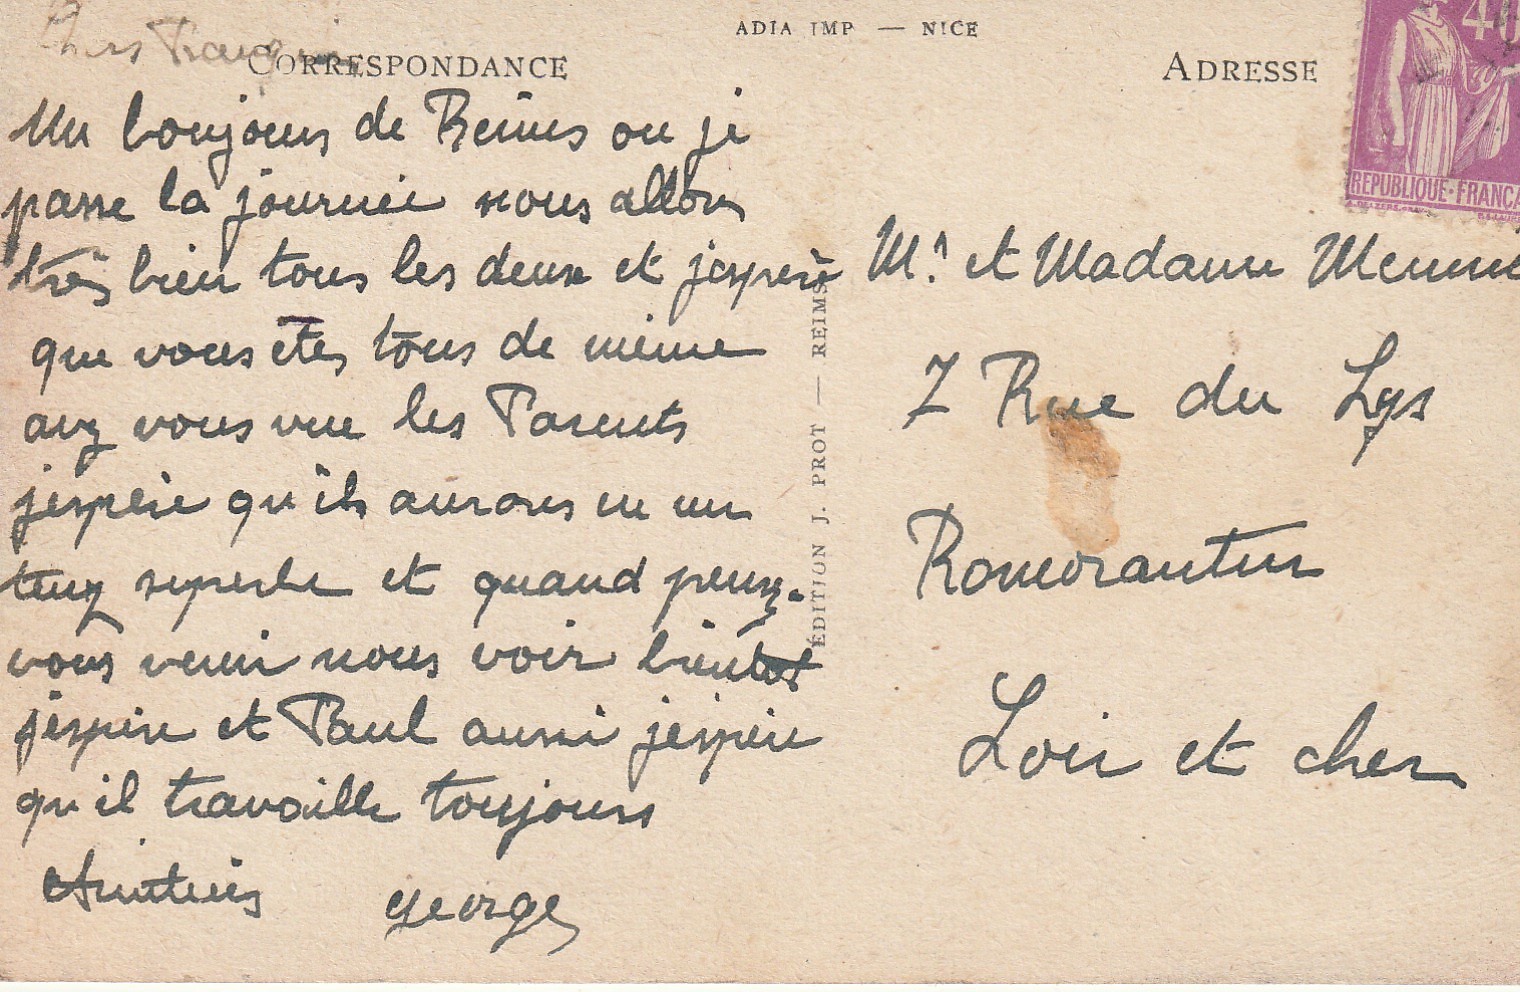 ADIA IMP — NICE
CORRESPONDANCE
ADRESSE
Chers
Un bonjour de Reims ou je
passe la journée nous allons
très bien tous les deux et jespère
que vous êtes tous de même
avez vous vue les Parents
jespère qu'ils aurons eu un
temp superbe et quand penez-
vous venir nous voir bientot
jespère et Paul aussi jespère
qu'il travaille toujours
george
EDITION J. PROT — REIMS
40
REPUBLIQUE-FRANÇA
Mr et Madame
7 Rue du Lys
Romorantin
Loir et cher